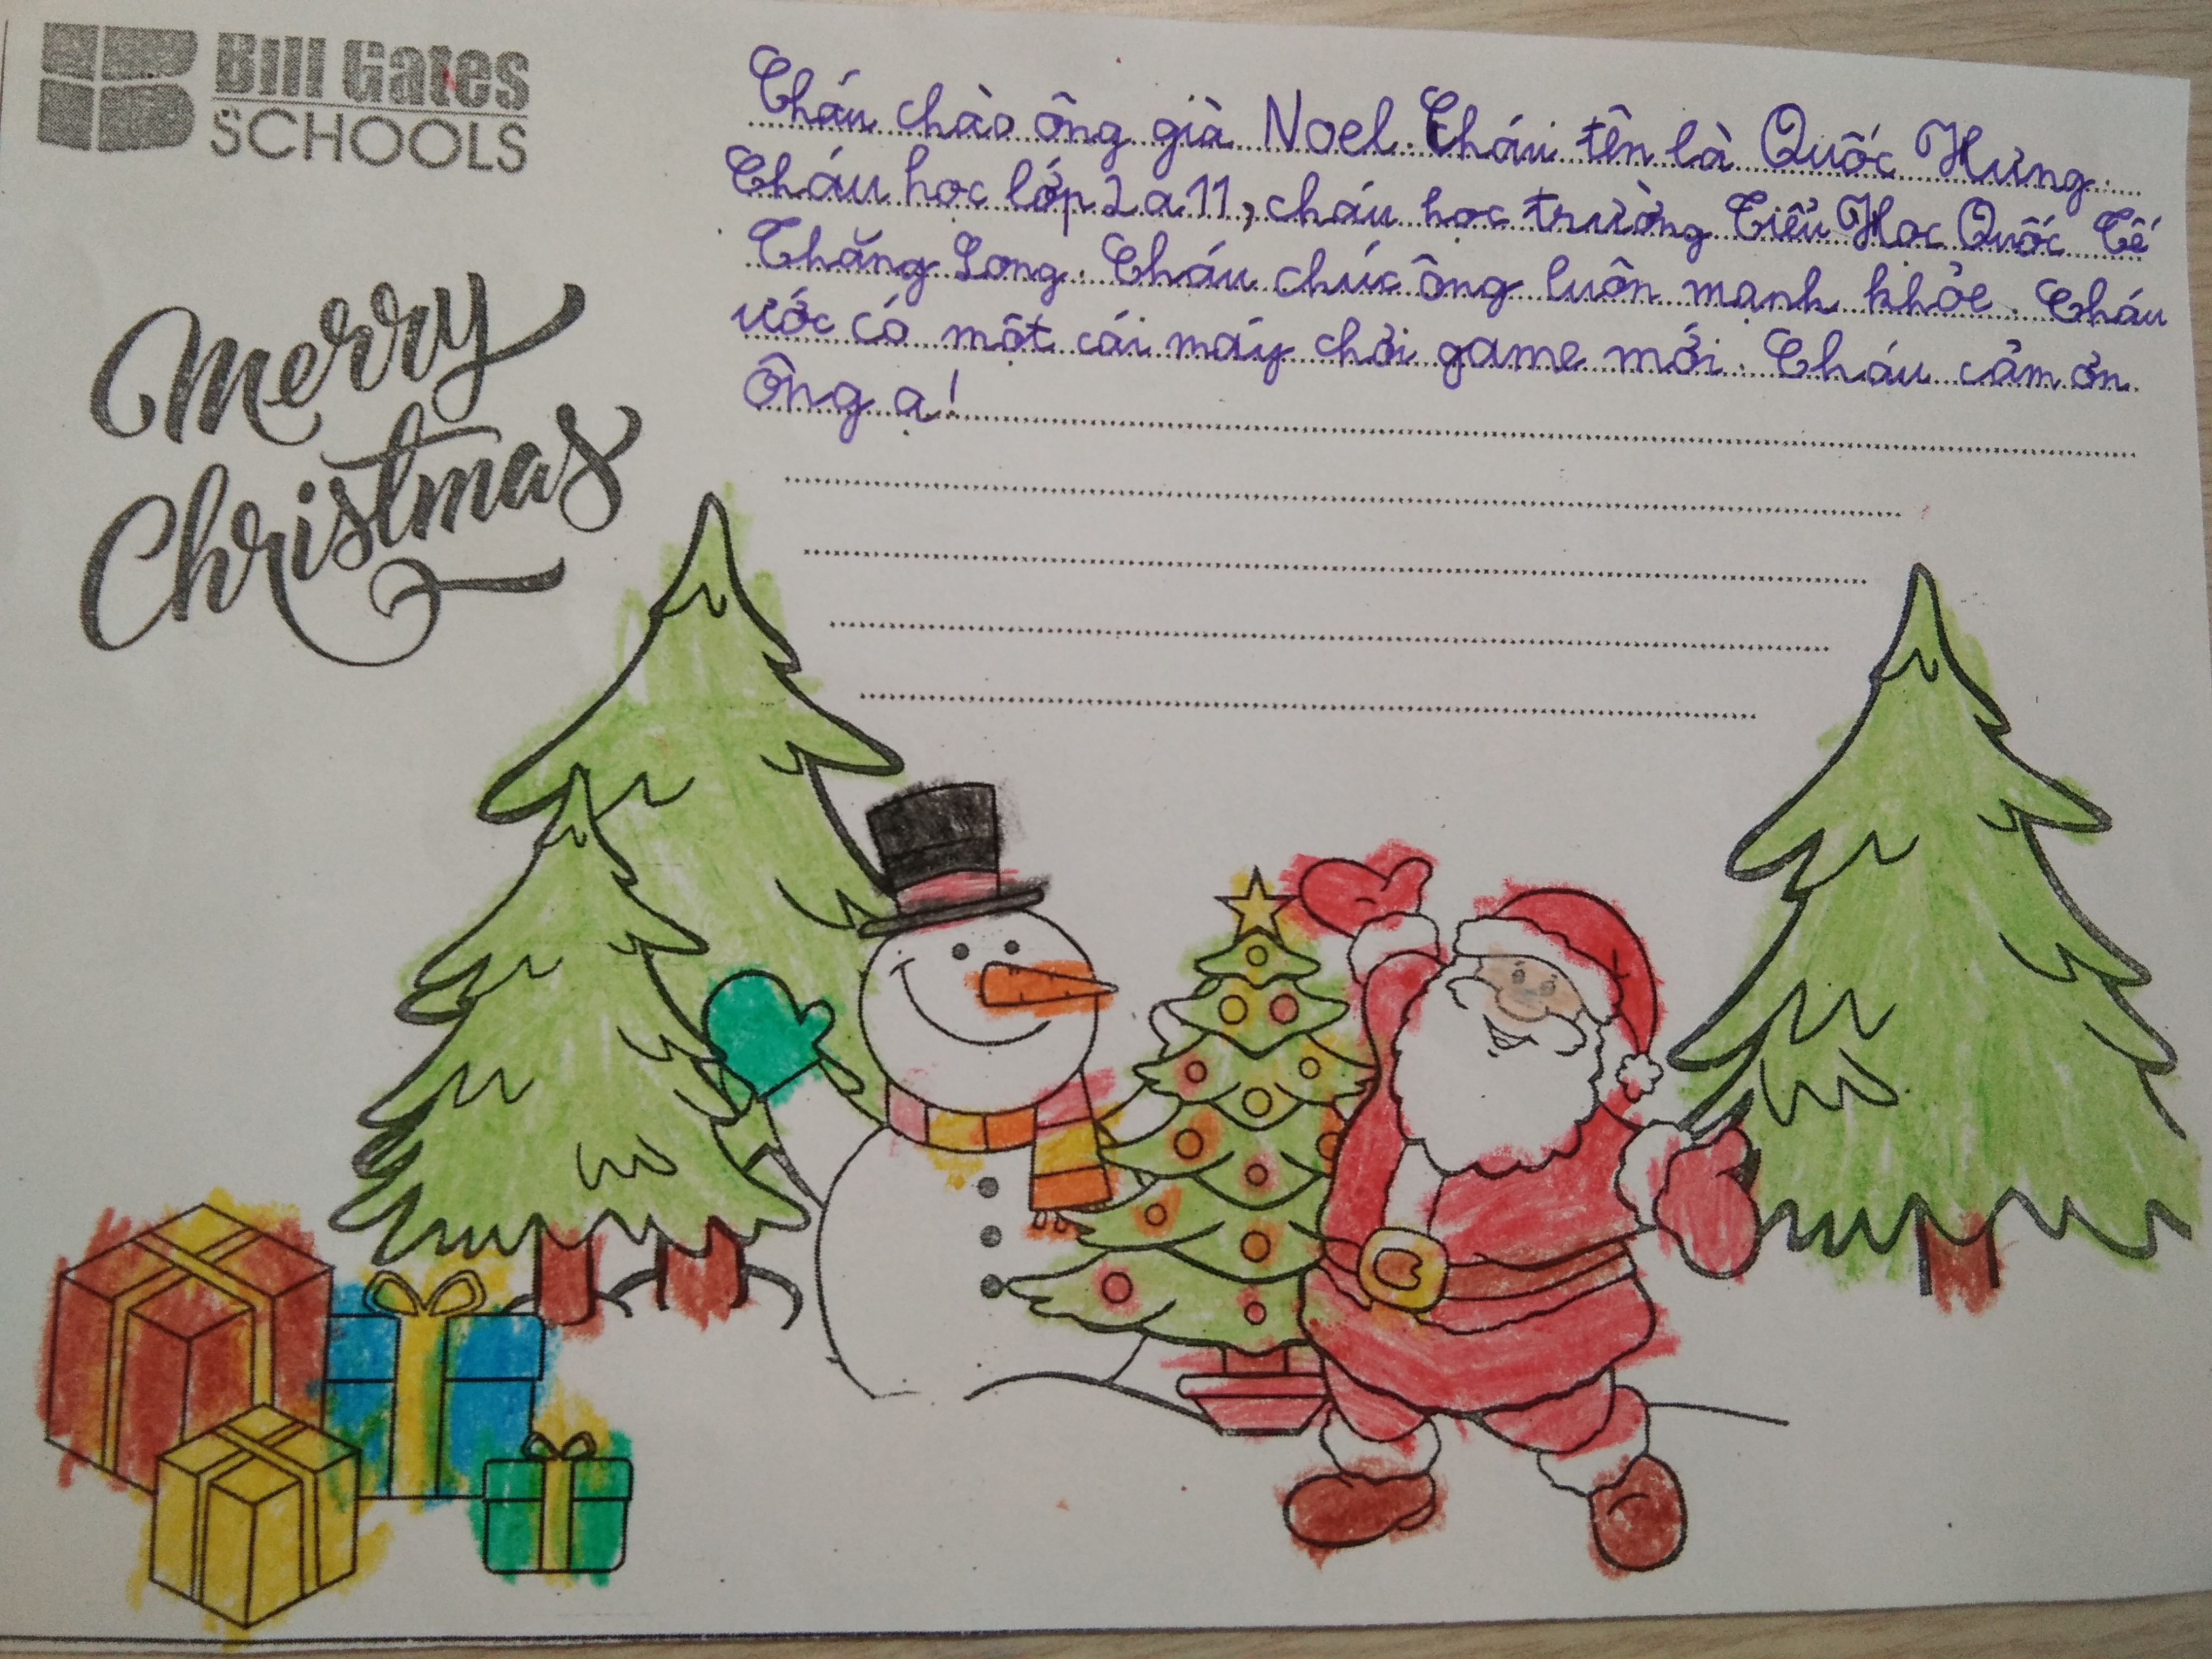 Bill Gates
SCHOOLS
Merry
Christmas
Cháu chào ông già Noel. Cháu tên là Quốc Hưng.
Cháu học lớp 2a11, cháu học trường Tiểu Học Quốc Tế
Thăng Long. Cháu chúc ông luôn mạnh khỏe. Cháu
ước có một cái máy chơi game mới. Cháu cảm ơn
ông ạ!